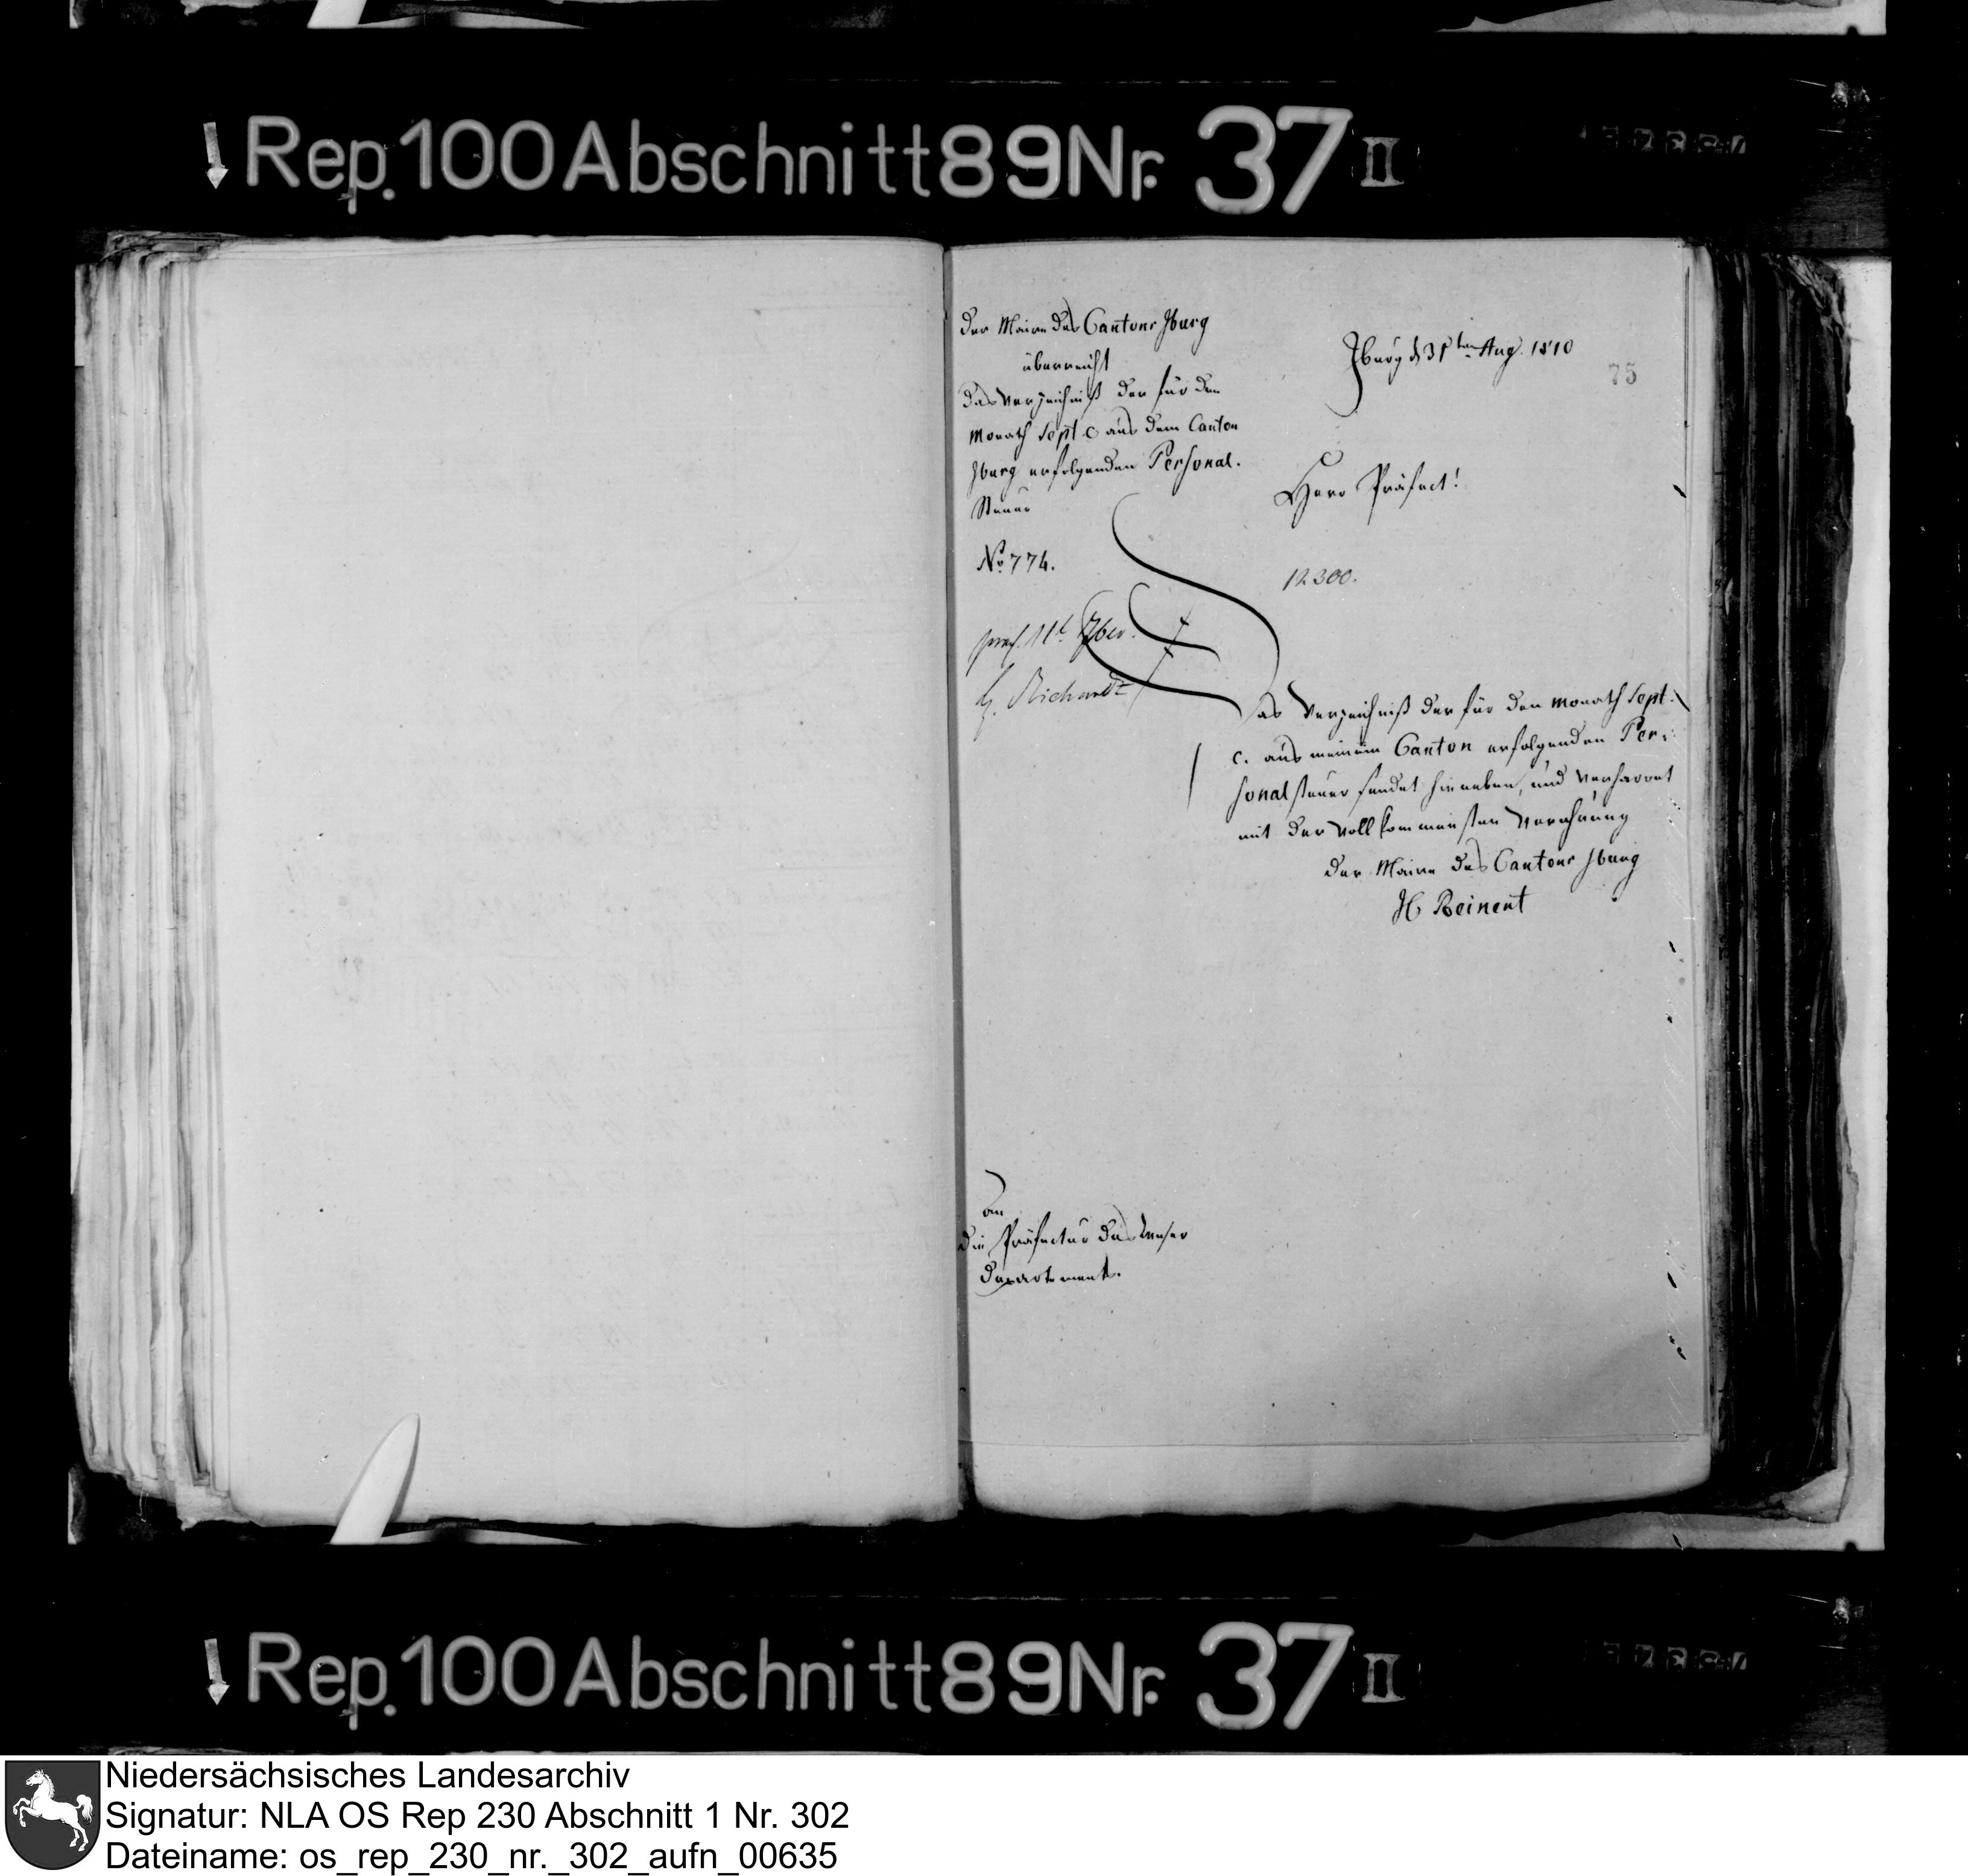 Rep. 100 Abschnitt 89 Nr. 37 II
Der Maire des Cantons Iburg
überreicht
das Verzeichniß der für den
Monath Sept. c. aus dem Canton
Iburg erfolgenden Personal-
Steuer
No. 774.
Iburg d 31ten Aug. 1810
75
Herr Präfect!
12300.
Richardt
Das Verzeichniß der für den Monath Sept.
c. aus meinem Canton erfolgenden Per-
sonalsteuer sendet hieneben, und verharret
mit der vollkommensten Verehrung
der Maire des Cantons Iburg
H Reinert
An
die Präfectur des Weser
Departements.
Rep. 100 Abschnitt 89 Nr. 37 II
Niedersächsisches Landesarchiv
Signatur: NLA OS Rep 230 Abschnitt 1 Nr. 302
Dateiname: os_rep_230_nr._302_aufn_00635